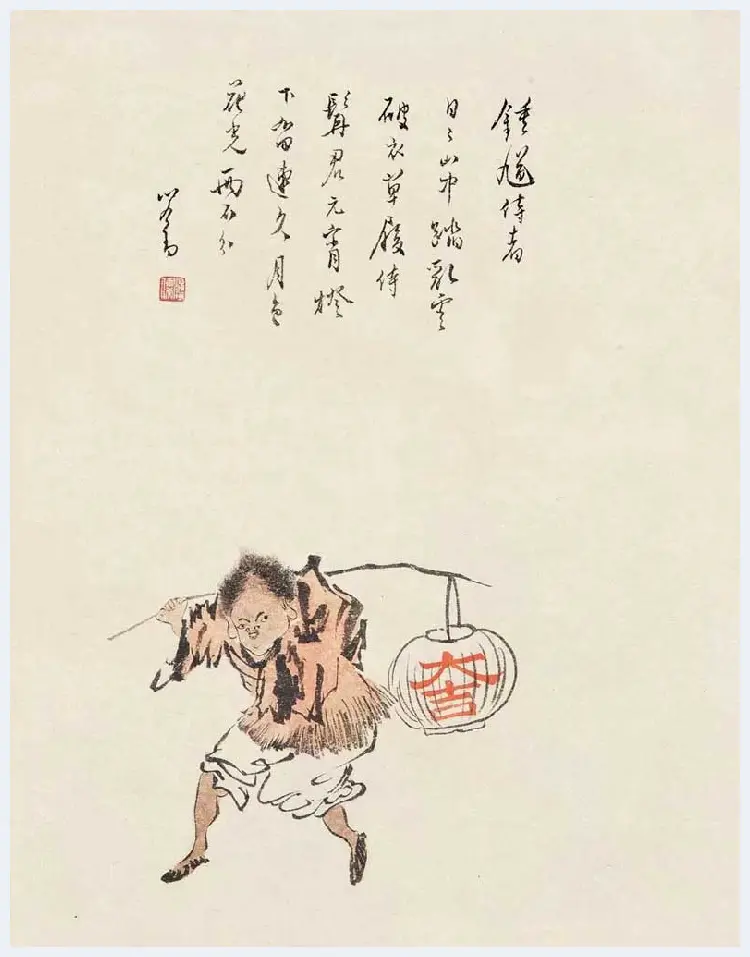 鍾馗侍者
日〻山中踏亂雲
破衣草履侍
髯君元宵燈
下留連久月色
花光兩不分
心畬
大吉